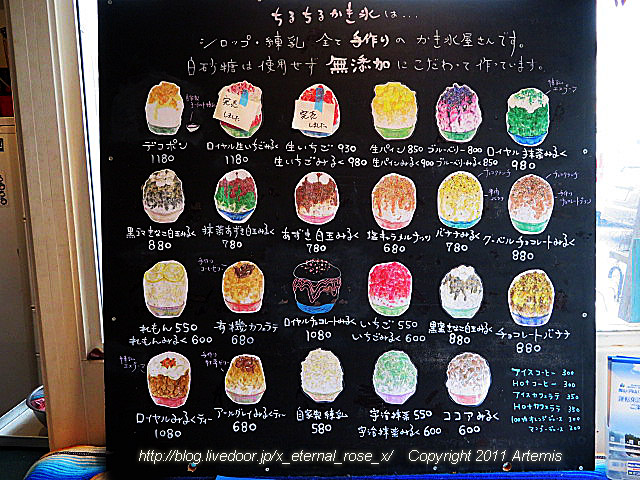 ちるちるかき氷は…
シロップ・練乳 全て手作りの かき氷屋さんです。
白砂糖は使用せず 無添加にこだわって作っています。
完売しました
完売しました
デコポン
1180
ロイヤル生いちごみるく
1180
生いちご 930
生いちごみるく 980
生パイン 850
生パインみるく 900
ブルーベリー 800
ブルーベリーみるく 850
ロイヤル抹茶みるく
980
黒ごまきなこ白玉みるく
880
抹茶あずき白玉みるく
780
あずき白玉みるく
780
塩キャラメルナッツ
680
バナナみるく
780
クーベルチョコレートみるく
880
れもん 550
れもんみるく 600
有機カフェラテ
680
ロイヤルチョコレートみるく
1080
いちご 550
いちごみるく 600
黒蜜きなこ白玉みるく
880
チョコレートバナナ
880
ロイヤルみるくティー
1080
アールグレイみるくティー
680
自家製練乳
580
宇治抹茶 550
宇治抹茶みるく 600
ココアみるく
600
アイスコーヒー 300
Hotコーヒー 300
アイスカフェラテ 350
Hotカフェラテ 350
100%オレンジジュース 300
マンゴージュース 300
http://blog.livedoor.jp/x_eternal_rose_x/ Copyright 2011 Artemis